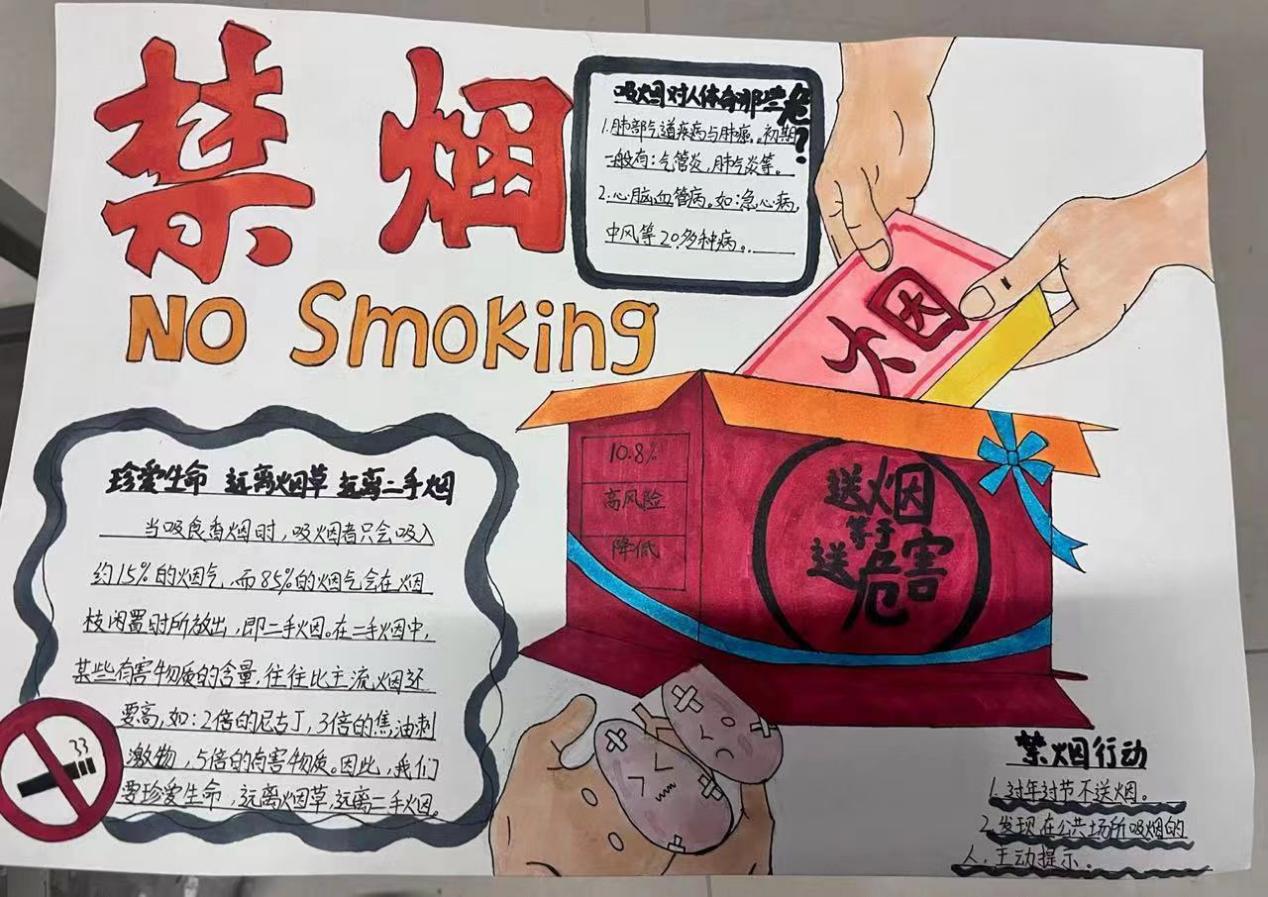 禁烟
NO Smoking
吸烟对人体有哪些危?
1.肺部气道疾病与肺癌。初期
一般有:气管炎,肺气炎等。
2.心脑血管病。如:急心病,
中风等20多种病。
火因
10.8%
高风险
降低
送烟
等于
送危害
珍爱生命 远离烟草 远离二手烟
当吸食香烟时,吸烟者只会吸入
约15%的烟气,而85%的烟气会在烟
枝闲置时所放出,即二手烟。在二手烟中,
某些有害物质的含量,往往比主流烟还
要高,如:2倍的尼古丁,3倍的焦油刺
激物,5倍的有害物质。因此,我们
要珍爱生命,远离烟草,远离二手烟。
禁烟行动
1.过年过节不送烟。
2.发现在公共场所吸烟的
人,主动提示。